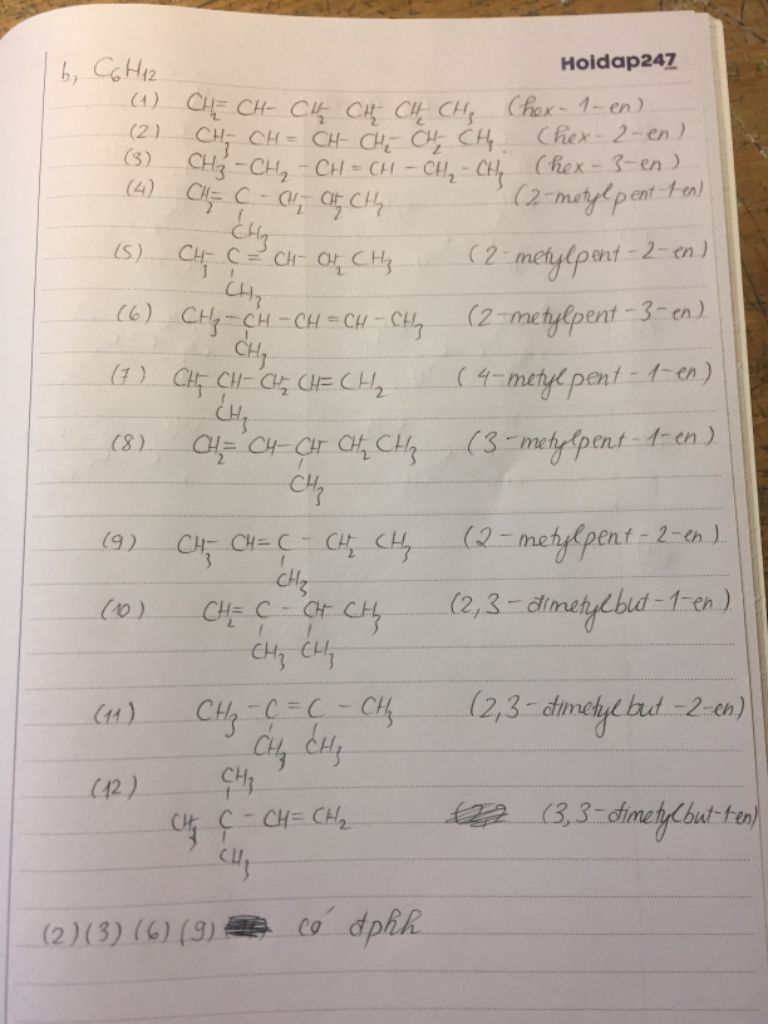 Hoidap247
b, C6H12
(1) CH2=CH-CH2-CH2-CH2-CH3 (hex-1-en)
(2) CH3-CH=CH-CH2-CH2-CH3. (hex-2-en)
(3) CH3-CH2-CH=CH-CH2-CH3 (hex-3-en)
(4) CH2=C-CH2-CH2-CH3 (2-metylpent-1-en)
CH3
(5) CH3-C=CH-CH2-CH3 (2-metylpent-2-en)
CH3
(6) CH3-CH-CH=CH-CH3 (2-metylpent-3-en)
CH3
(7) CH3-CH-CH2-CH=CH2 (4-metylpent-1-en)
CH3
(8) CH2=CH-CH-CH2-CH3 (3-metylpent-1-en)
CH3
(9) CH3-CH=C-CH2-CH3 (2-metylpent-2-en)
CH3
(10) CH2=C-CH-CH3 (2,3-đimetylbut-1-en)
CH3 CH3
(11) CH3-C=C-CH3 (2,3-đimetylbut-2-en)
CH3 CH3
(12) CH3
CH3-C-CH=CH2 (3,3-đimetylbut-1-en)
CH3
(2)(3)(6)(9) có đphh